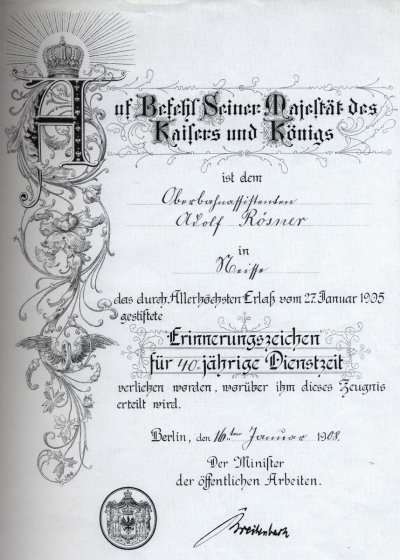 Auf Befehl Seiner Majestät des
Kaisers und Königs
ist dem
Oberbahnassistenten
Adolf Rösner
in
Neisse
das durch Allerhöchsten Erlaß vom 27. Januar 1905
gestiftete
Erinnerungszeichen
für 40 jährige Dienstzeit
verliehen worden, worüber ihm dieses Zeugnis
erteilt wird.
Berlin, den 16ten Januar 1908.
Der Minister
der öffentlichen Arbeiten.
Breitenbach